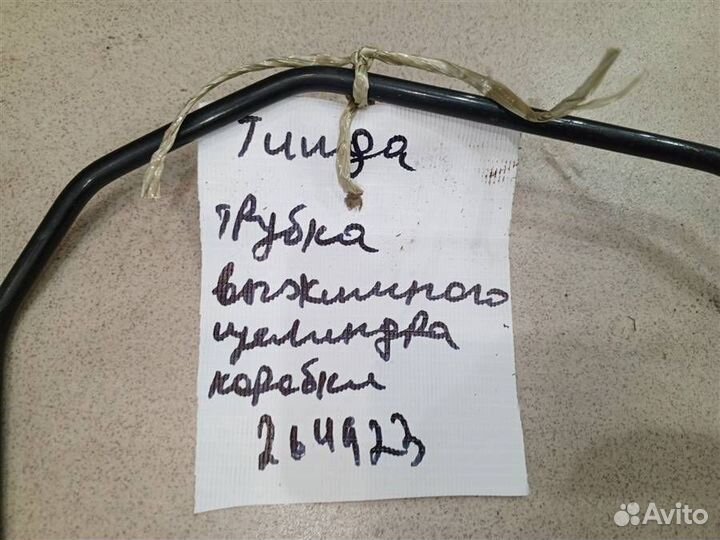 Тиида
трубка
выжимного
целиндра
коробки
264923
Avito